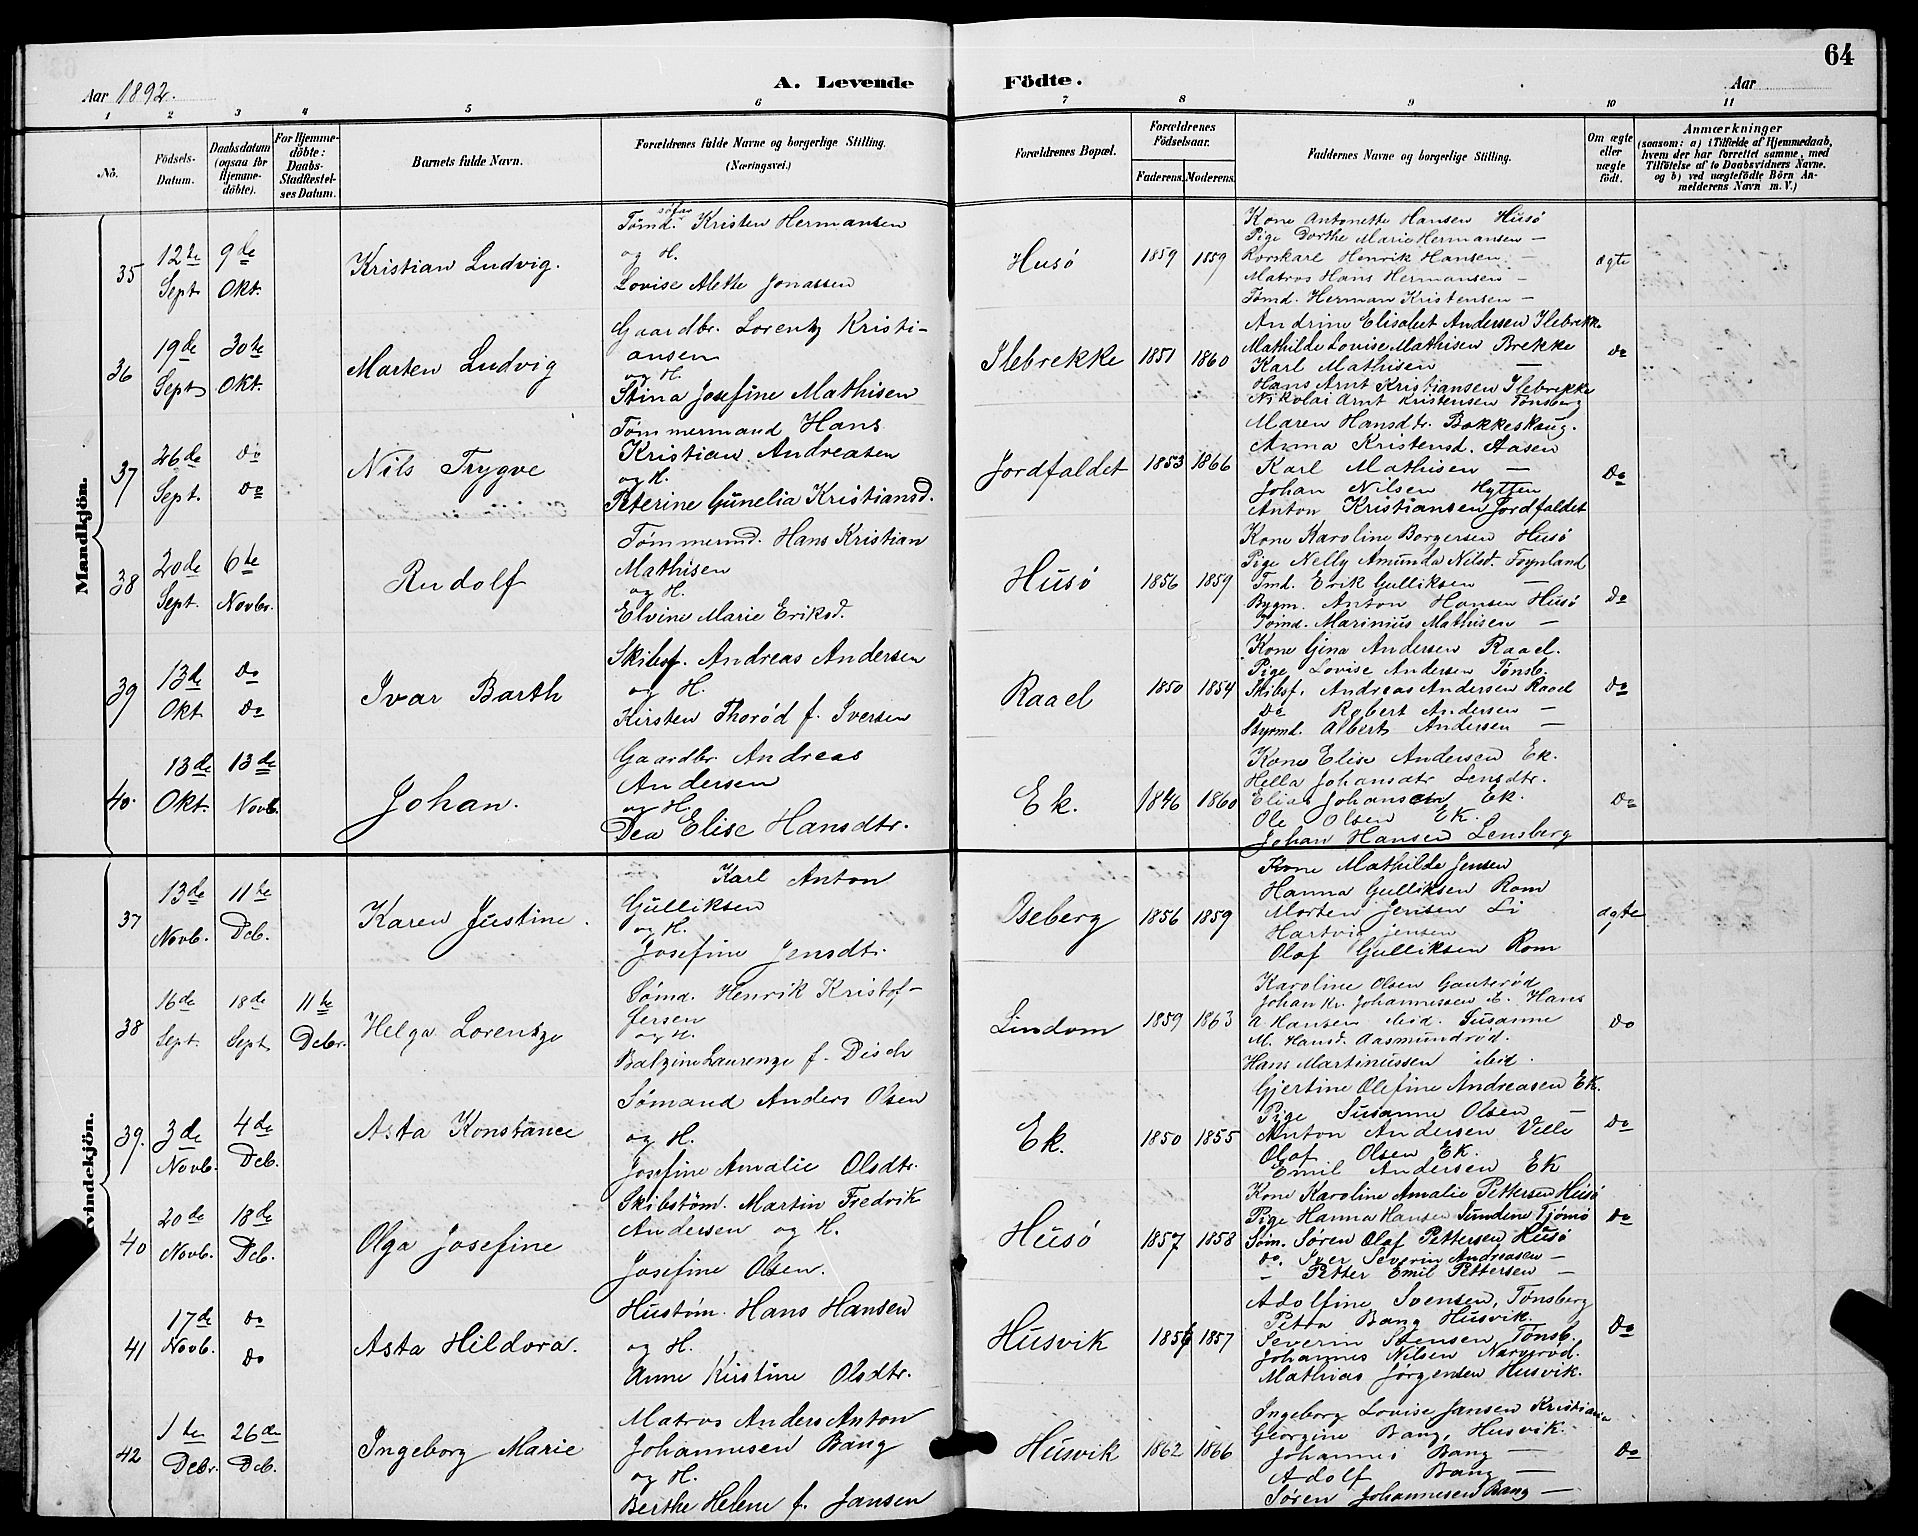 64
Aar 1892.
A. Levende Födte.
Aar
1 2 3 4 5 6 7 8 9 10 11
No.
Födsels-Datum.
Daabsdatum (ogsaa för Hjemme-döbte).
For Hjemme-döbte: Daabs-Stadfæstel-ses Datum.
Barnets fulde Navn.
Forældrenes fulde Navne og borgerlige Stilling.
(Næringsvei.)
Forældrenes Bopæl.
Forældrenes Födselsaar.
Faderens. Moderens.
Faddernes Navne og borgerlige Stilling.
Om ægte eller uægte födt.
Anmærkninger
(saasom: a) i Tilfælde af Hjemmedaab, hvem der har forrettet samme, med Tilföielse af to Daabsvidners Navne. og b) ved uægtefödte Börn An-melderens Navn m. V.)
Mandkjön.
35
12te Sept.
9de Okt.
Kristian Ludvig.
Tømd. Kristen Hermansen
og H.
Lovise Alette Jonassen
Husö
1859 1859
Kone Antonette Hansen Husö
Pige Dorthe Marie Hermansen —
Henrik Hansen —
Matros Hans Hermansen —
Tømd. Herman Kristensen —
ægte
36
19de Sept
30te Okt.
Marten Ludvig
Gaardbr. Lorentz Kristi-
ansen
og H.
Stina Josefine Mathisen
Ilebrekke
1851 1860
Andrine Elisabet Andersen Ilebrekk.
Mathilde Lovise Mathisen Brekke
Karl Mathisen —
Hans Arnt Kristiansen Ilebrekke
Nikolai Arnt Kristensen Tønsberg
do
37
26de Sept.
do do
Nils Trygve
Tømmermand Hans
Kristian Andreasen
og H.
Peterine Gunelia Kristiansd.
Jordfaldet
1853 1866
Maren Hansdtr. Bakkeskaug.
Anna Kristensd. Aasen
Karl Mathisen —
Johan Nilsen Hytten
Anton Kristiansen Jordfaldet
do
38
20de Sept.
6te Novbr.
Rudolf
Tømmermd. Hans Kristian
Mathisen
og H.
Elvine Marie Eriksd.
Husö
1856 1859
Kone Karoline Borgersen Husö
Pige Nelly Amunda Nilsd. Toynland
Tmd. Erik Gulliksen —
Bygm. Anton Hansen Husö
Tømd. Marinius Mathisen —
do
39
13de Okt
do do
Ivar Barth
Skibsf. Andreas Andersen
og H.
Kirsten Thorød f. Iversen
Raael
1850 1854
Kone Gina Andersen Raael.
Pige Lovise Andersen Tønsb.
Skibsf. Andreas Andersen Raael
do Robert Andersen —
Styrmd. Albert Andersen —
do
40.
13de Okt.
13de Novb.
Johan.
Gaardbr Andreas
Andersen
og H.
Dea Elise Hansdtr.
Ek.
1846 1860
Kone Elise Andersen Ek.
Hella Johansdtr
Elias Johansen Ek.
Ole Olsen Ek.
Johan Hansen Lensberg
do
Kvindekjön.
37
13de Novb.
11te Dcb.
Karen Justine.
Karl Anton
Gulliksen
og H.
Josefine Jensdtr.
Oseberg
1856 1859
Kone Mathilde Jensen
Hanna Gulliksen Rom
Morten Jensen Li
Hartvig Jensen
Olaf Gulliksen Rom
ægte
38
16de Sept.
18de Sept
11te Dcbr.
Helga Lorentze
Sømd. Henrik Kristof-
fersen
og H.
Balzine Laurenze f. Disch
Lindom
1859 1863
Karoline Olsen Gauterød
Johan Kr. Johannessen E. Hans
A Hansen ibid. Susanne
M. Hansd. Aasmundrød.
Hans Martinussen ibid.
do
39.
3de Novb.
4de Dcb.
Asta Konstance
Sømand Anders Olsen
og H.
Josefine Amalie Olsdtr.
Ek.
1850 1855
Gjertine Olefine Andreasen Ek.
Pige Susanne Olsen —
Anton Andersen Velle
Olaf Olsen Ek.
Emil Andersen Ek
do
40
20de Novb.
18de Dcb.
Olga Josefine
Skibstøm. Martin Fredrik
Andersen og H.
Josefine Olsen.
Husö
1857 1858
Kone Karoline Amalie Pettersen Husö
Pige Hanna Hansen Sundene Tjömö
Søm. Søren Olaf Pettersen Husö
do. Iver Severin Andreasen —
— Petter Emil Pettersen —
do
41
17de Novb.
do do
Asta Hildora.
Hustøm. Hans Hansen
og H.
Anne Kirstine Olsdtr.
Husvik
1856 1857
Adolfine Svensen, Tønsberg
Petra Bang Husvik.
Severin Svensen, Tønsb.
Johannes Nilsen Narverød.
Mathias Jørgensen Husvik.
do
42
1ste Dcbr.
26de Dcb.
Ingeborg Marie
Matros Anders Anton
Johannesen Bang
og H.
Berthe Helene f. Jansen
Husvik
1862 1866
Ingeborg Lovise Jansen Kristiania
Georgine Bang, Husvik.
Johannes Bang —
Adolf Bang —
Søren Johannesen Bang —
do